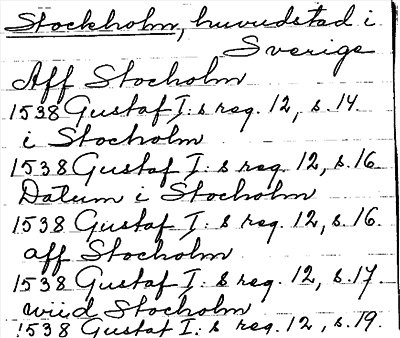 Stockholm, huvudstad i
Sverige
Aff Stocholm
1538 Gustaf I:s reg. 12, s.14.
i Stocholm
1538 Gustaf I: s reg. 12, s.16
Datum i Stocholm
1538 Gustaf I: s reg. 12, s.16.
aff Stocholm
1538 Gustaf I: s reg. 12, s.17
wiid Stocholm
1538 Gustaf I: s reg. 12, s.19.